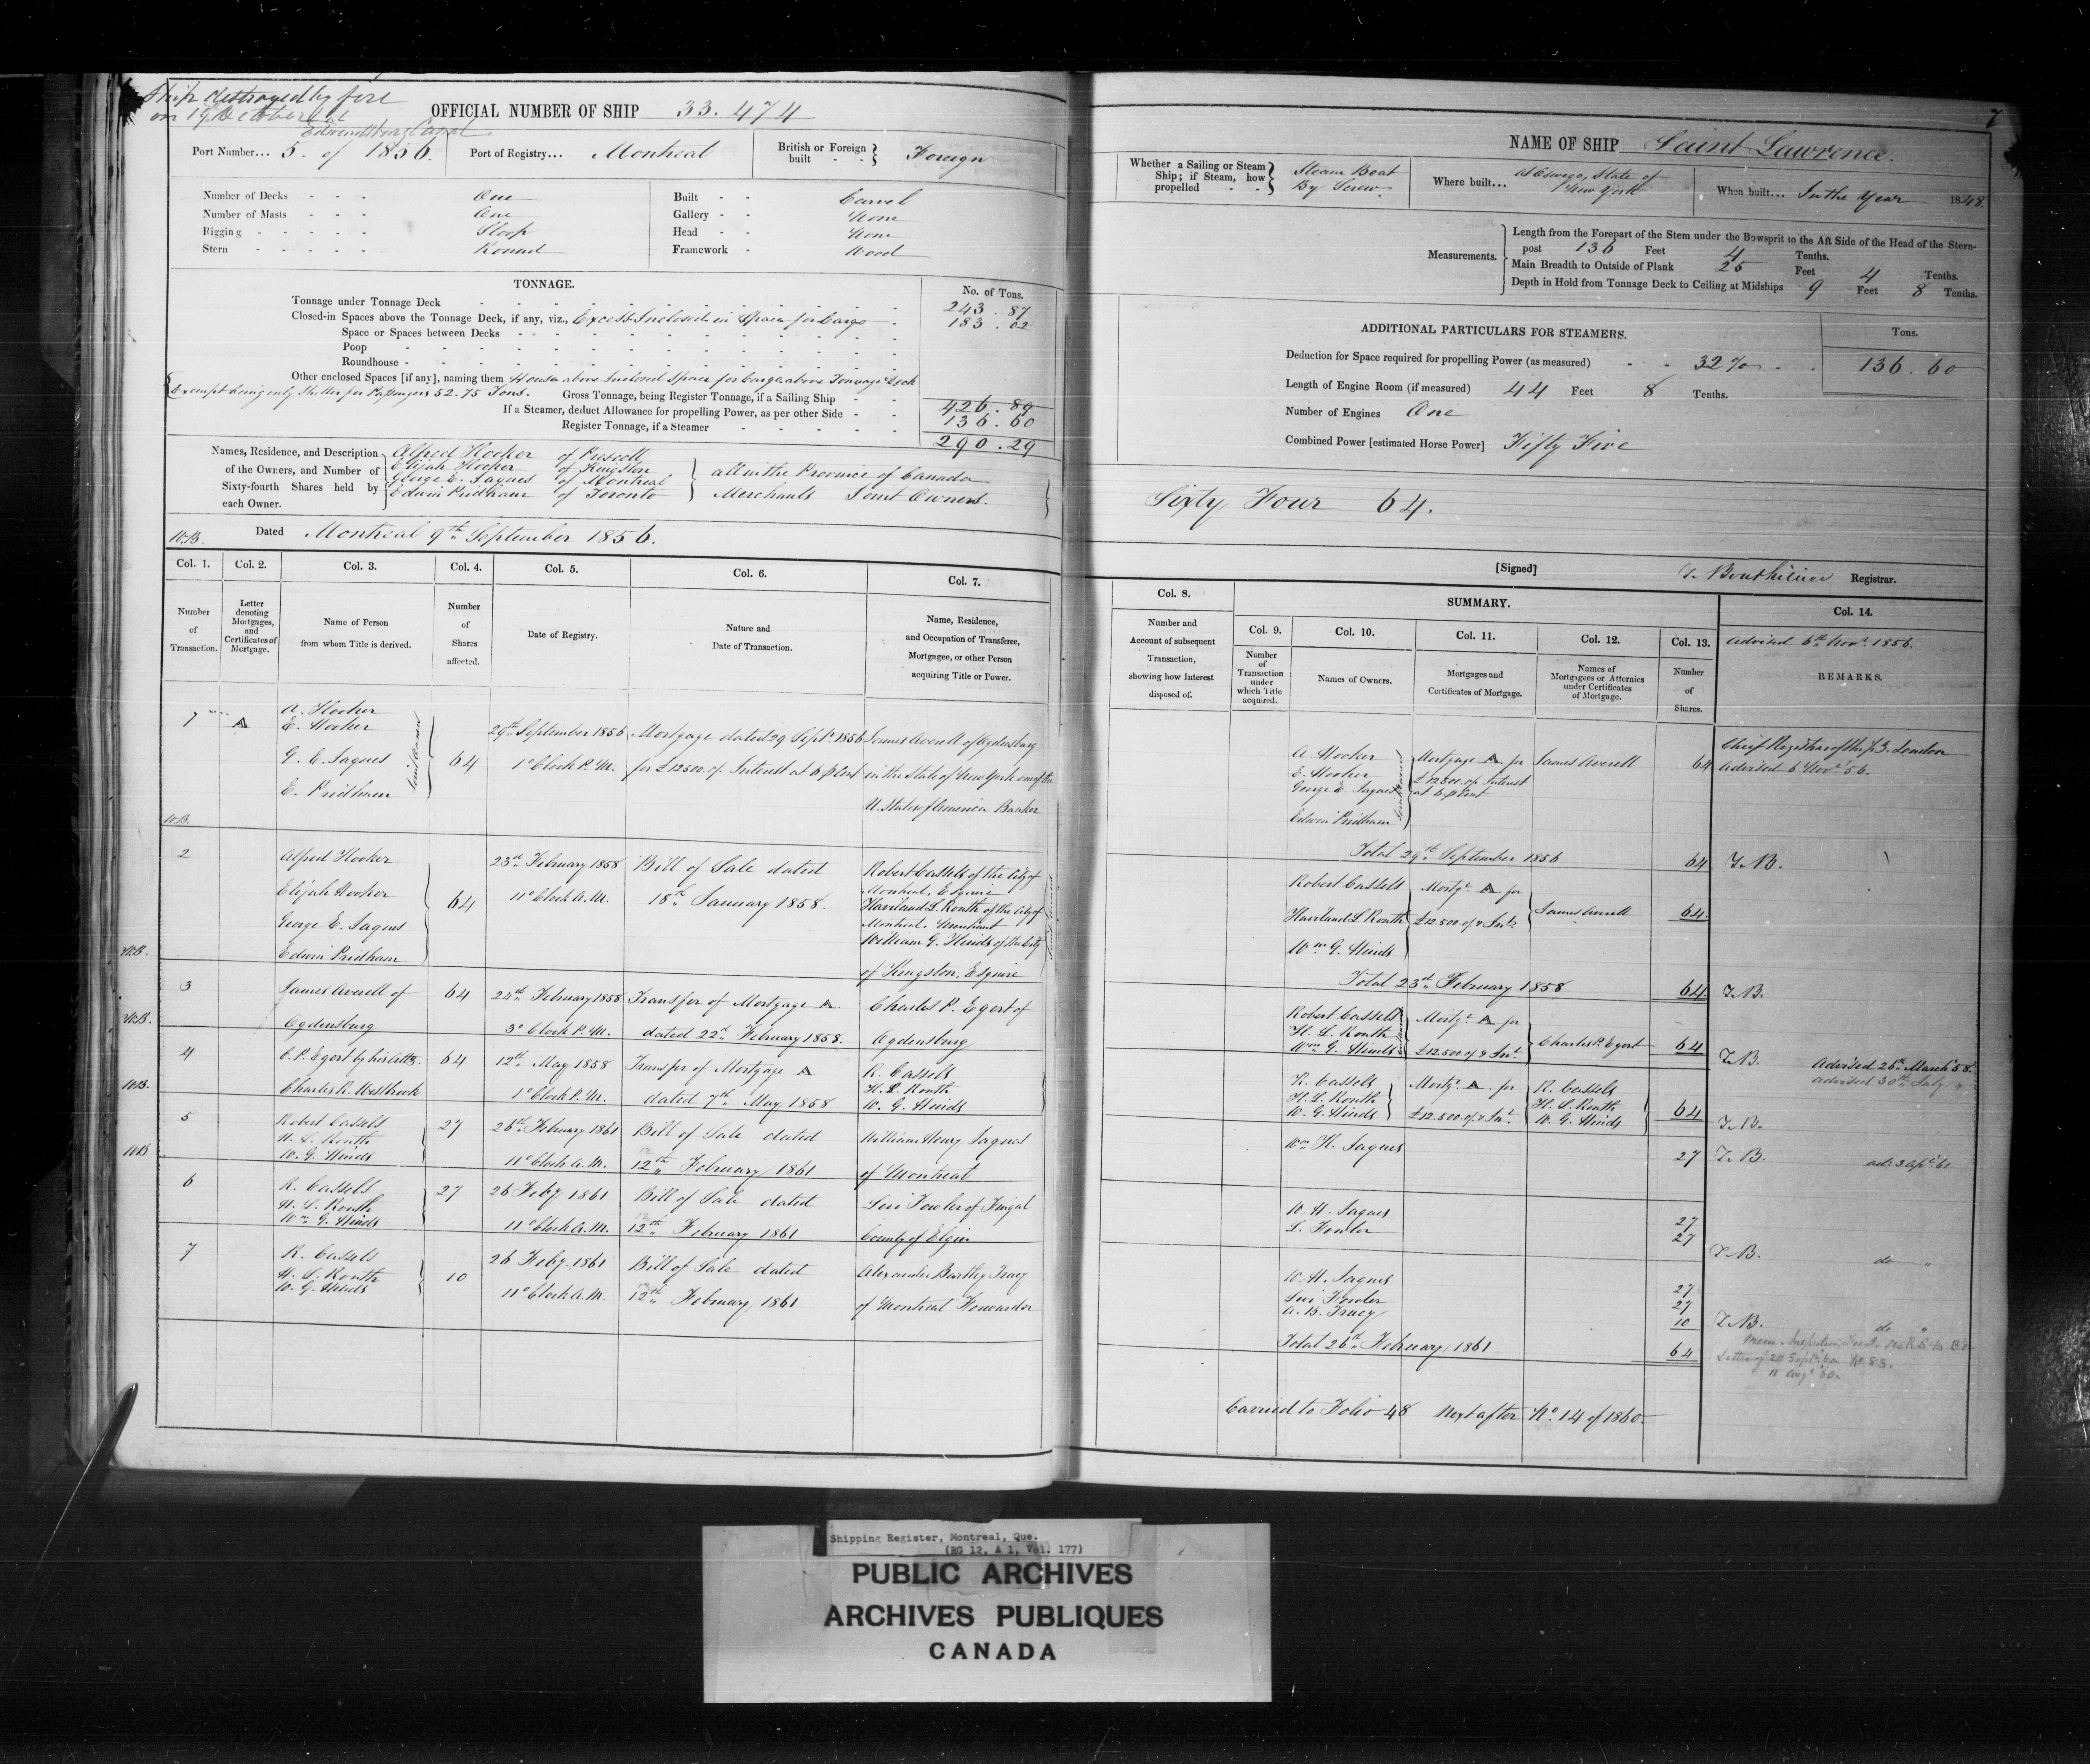 Ship destroyed by fire
on 19 October at
Canal
OFFICIAL NUMBER OF SHIP 33.474
Port Number... 5. of 1856. Port of Registry... Montreal British or Foreign built Foreign
Number of Decks One Built Carvel
Number of Masts One Gallery None
Rigging Sloop Head None
Stern Round Framework Wood
TONNAGE.
No. of Tons.
Tonnage under Tonnage Deck 243.87
Closed-in Spaces above the Tonnage Deck, if any, viz., Excess Inclosed in Space for Cargo 183.02
Space or Spaces between Decks
Poop
Roundhouse
Other enclosed Spaces [if any], naming them House above Inclosed Space for Cargo above Tonnage Deck
Exempt being only Shelter for Passengers 52.75 Tons. Gross Tonnage, being Register Tonnage, if a Sailing Ship 426.89
If a Steamer, deduct Allowance for propelling Power, as per other Side 136.60
Register Tonnage, if a Steamer 290.29
Names, Residence, and Description of the Owners, and Number of Sixty-fourth Shares held by each Owner.
Alfred Hooker of Prescott
Elijah Hooker of Kingston
George E. Jaques of Montreal
Edwin Pridham of Toronto
all in the Province of Canada
Merchants Joint Owners.
W.B. Dated Montreal 9th September 1856.
Col. 1. Col. 2. Col. 3. Col. 4. Col. 5. Col. 6. Col. 7.
Number of Transaction.
Letter denoting Mortgages, and Certificates of Mortgage.
Name of Person from whom Title is derived.
Number of Shares affected.
Date of Registry.
Nature and Date of Transaction.
Name, Residence, and Occupation of Transferee, Mortgagee, or other Person acquiring Title or Power.
1 A
A. Hooker
E. Hooker
G. E. Jaques
E. Pridham
Joint Owners
64
29th September 1856
1 o'Clock P.M.
Mortgage dated 29 Septr. 1856
for £12500 of Interest at 6 p Cent
James Averell of Ogdensburg
in the State of New York one of the
U. States of America Banker
W.B.
2
Alfred Hooker
Elijah Hooker
George E. Jaques
Edwin Pridham
64
23rd February 1858
11 o'Clock A.M.
Bill of Sale dated
18th January 1858.
Robert Cassels of the City of
Montreal, Esquire
Haviland L. Routh of the City of
Montreal, Merchant
William G. Hinds of the City
of Kingston, Esquire
W.B.
3
James Averell of
Ogdensburg
64
24th February 1858
3 o'Clock P.M.
Transfer of Mortgage A
dated 22nd February 1858.
Charles P. Egert of
Ogdensburg
W.B.
4
C. P. Egert by his Atty.
Charles R. Westbrook
64
12th May 1858
1 o'Clock P.M.
Transfer of Mortgage A
dated 7th May 1858
R. Cassels
H. L. Routh
W. G. Hinds
W.B.
5
Robert Cassels
H. L. Routh
W. G. Hinds
27
26th February 1861
11 o'Clock A.M.
Bill of Sale dated
12th February 1861
William Henry Jaques
of Montreal
W.B
6
R. Cassels
H. L. Routh
Wm G. Hinds
27
26 Feby 1861
11 o'Clock A.M.
Bill of Sale dated
12th February 1861
Levi Fowler of Fingal
County of Elgin
7
R. Cassels
H. L. Routh
W. G. Hinds
10
26 Feby. 1861
11 o'Clock A.M.
Bill of Sale dated
12th February 1861
Alexander Bartley Tracy
of Montreal Forwarder
7
NAME OF SHIP Saint Lawrence.
Whether a Sailing or Steam Ship; if Steam, how propelled Steam Boat By Screw
Where built... At Oswego, State of New York
When built... In the Year 1848.
Measurements.
Length from the Forepart of the Stem under the Bowsprit to the Aft Side of the Head of the Stern-
post 136 Feet 4 Tenths.
Main Breadth to Outside of Plank 25 Feet 4 Tenths.
Depth in Hold from Tonnage Deck to Ceiling at Midships 9 Feet 8 Tenths.
ADDITIONAL PARTICULARS FOR STEAMERS.
Tons.
Deduction for Space required for propelling Power (as measured) 32% 136.60
Length of Engine Room (if measured) 44 Feet 8 Tenths.
Number of Engines One
Combined Power [estimated Horse Power] Fifty Five
Sixty Four 64.
[Signed] T. Bouthillier Registrar.
Col. 8. SUMMARY. Col. 14.
Col. 9. Col. 10. Col. 11. Col. 12. Col. 13.
Number and Account of subsequent Transaction, showing how Interest disposed of.
Number of Transaction under which Title acquired.
Names of Owners.
Mortgages and Certificates of Mortgage.
Names of Mortgagees or Attornies under Certificates of Mortgage.
Number of Shares.
Advised 6th Novr. 1856.
REMARKS.
A. Hooker
E. Hooker
George E. Jaques
Edwin Pridham
Mortgage A. for
£12500 of Interest
at 6 p Cent
James Averell
64
Chief Registrar of Ships London
Advised 6 Novr. 56.
Total 29th September 1856 64 T.B.
Robert Cassels
Haviland L. Routh
Wm G. Hinds
Mortge A. for
£12.500 of & Int.
James Averell
64
Total 23rd February 1858 64 T.B.
Robert Cassels
H. L. Routh
Wm G. Hinds
Mortge A for
£12.500 of & Int.
Charles P. Egert
64
T.B. Advised 25th March 58
Advised 30th July "
R. Cassels
H. L. Routh
W. G. Hinds
Mortge A. for
£12.500 of & Int.
R. Cassels
H. L. Routh
W. G. Hinds
64
T.B.
Wm H. Jaques 27 T.B. ad. 3 Apl. 61
W. H. Jaques 27
L. Fowler 27
T.B. do "
W. H. Jaques 27
Levi Fowler 27
A. B. Tracy 10 T.B. do "
Total 26th February 1861 64
Letter of 20 Sept. 60 No. 83.
11 Aug. 60.
Carried to Folio 48 Next after No. 14 of 1860.
Shipping Register, Montreal, Que.
(RG 12, A 1, Vol. 177)
PUBLIC ARCHIVES
ARCHIVES PUBLIQUES
CANADA